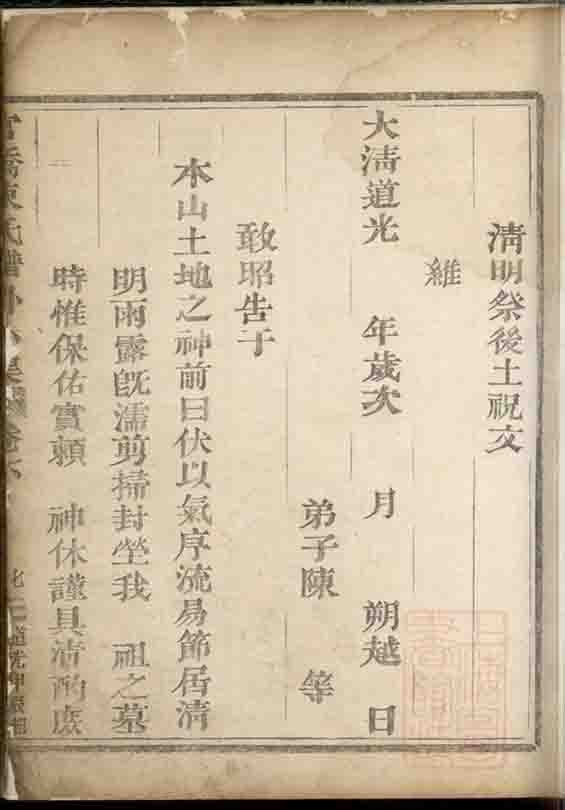 清明祭後土祝文
維
大清道光 年歲次 月 朔越 日
弟子陳 等
敢昭告于
本山土地之神前曰伏以氣序流易節居清
明雨露旣濡剪掃封塋我 祖之墓
時惟保佑實賴 神休謹具清酌庶
陳氏譜 卷六